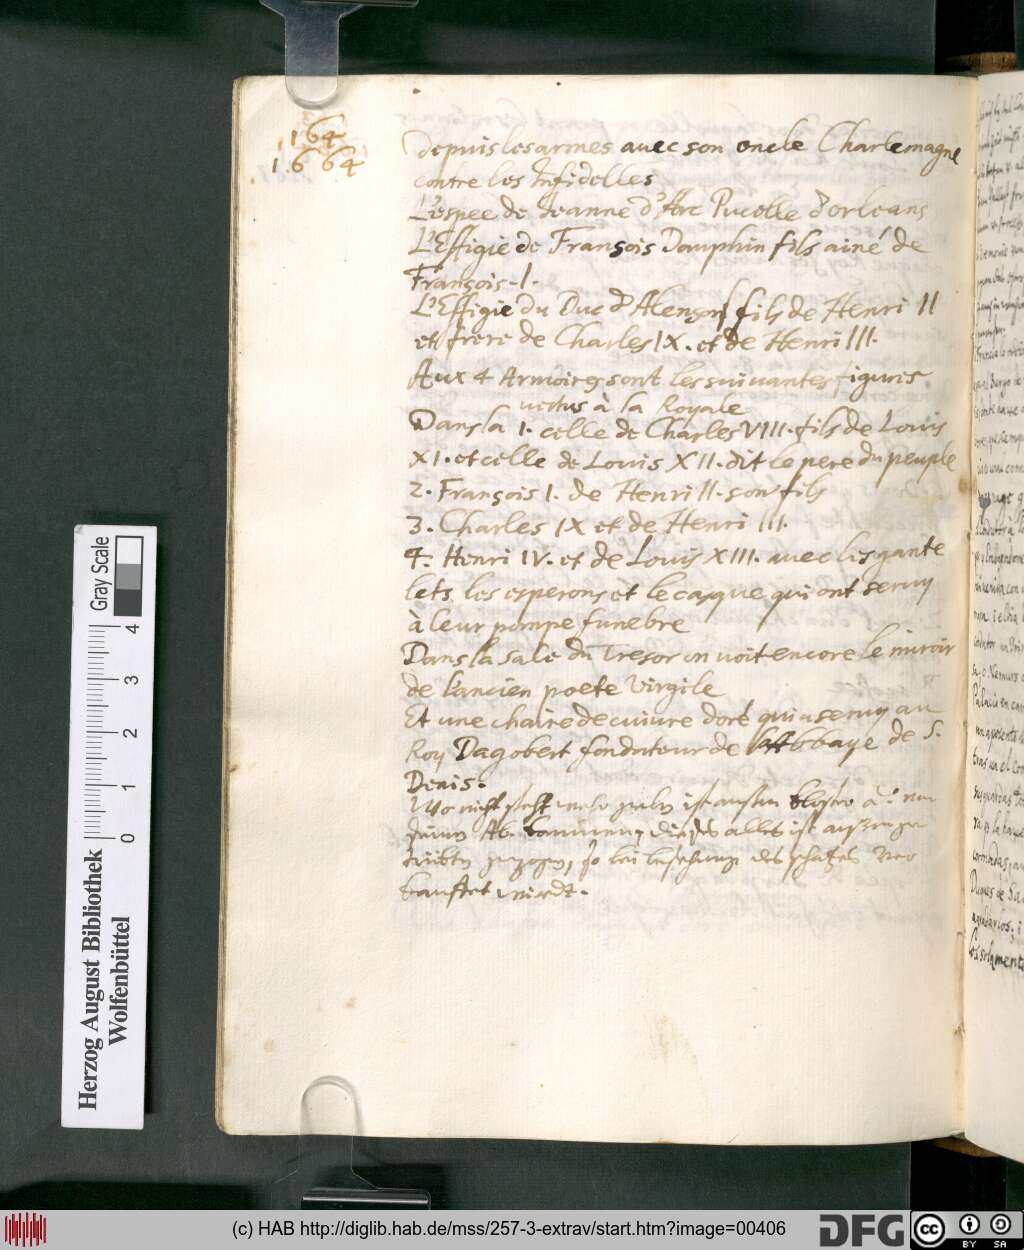 164
1664
depuis les armes avec son oncle Charlemagne
contre les Infidelles
L'espee de Jeanne d'Arc Pucelle d'orleans
L'Effigie de François Dauphin fils ainé de
François. I.
L'Effigie du Duc d'Alenson fils de Henri II
et frere de Charles IX. et de Henri III.
Aux 4 Armoires sont les suivantes figures
vestus à la Royale
Dans la 1. celle de Charles VIII. fils de Louis
XI. et celle de Louis XII. dit le pere du peuple
2. François I. de Henri II. son fils
3. Charles IX et de Henri III.
4. Henri IV. et de Louis XIII. avec les gante
lets, les esperons et le casque qui ont servy
à leur pompe funebre
Dans la sale du Tresor on voit encore le miroir
de l'ancien poete Virgile
Et une chaire de cuivre doré qui a servy au
Roy Dagobert fondateur de l'Abbaye de S.
Denis.
dieses alles ist auß
so bei des schatzes ver
kauffet wirdt.
Gray Scale
0 1 2 3 4
Herzog August Bibliothek
Wolfenbüttel
(c) HAB http://diglib.hab.de/mss/257-3-extrav/start.htm?image=00406
DFG
cc BY SA